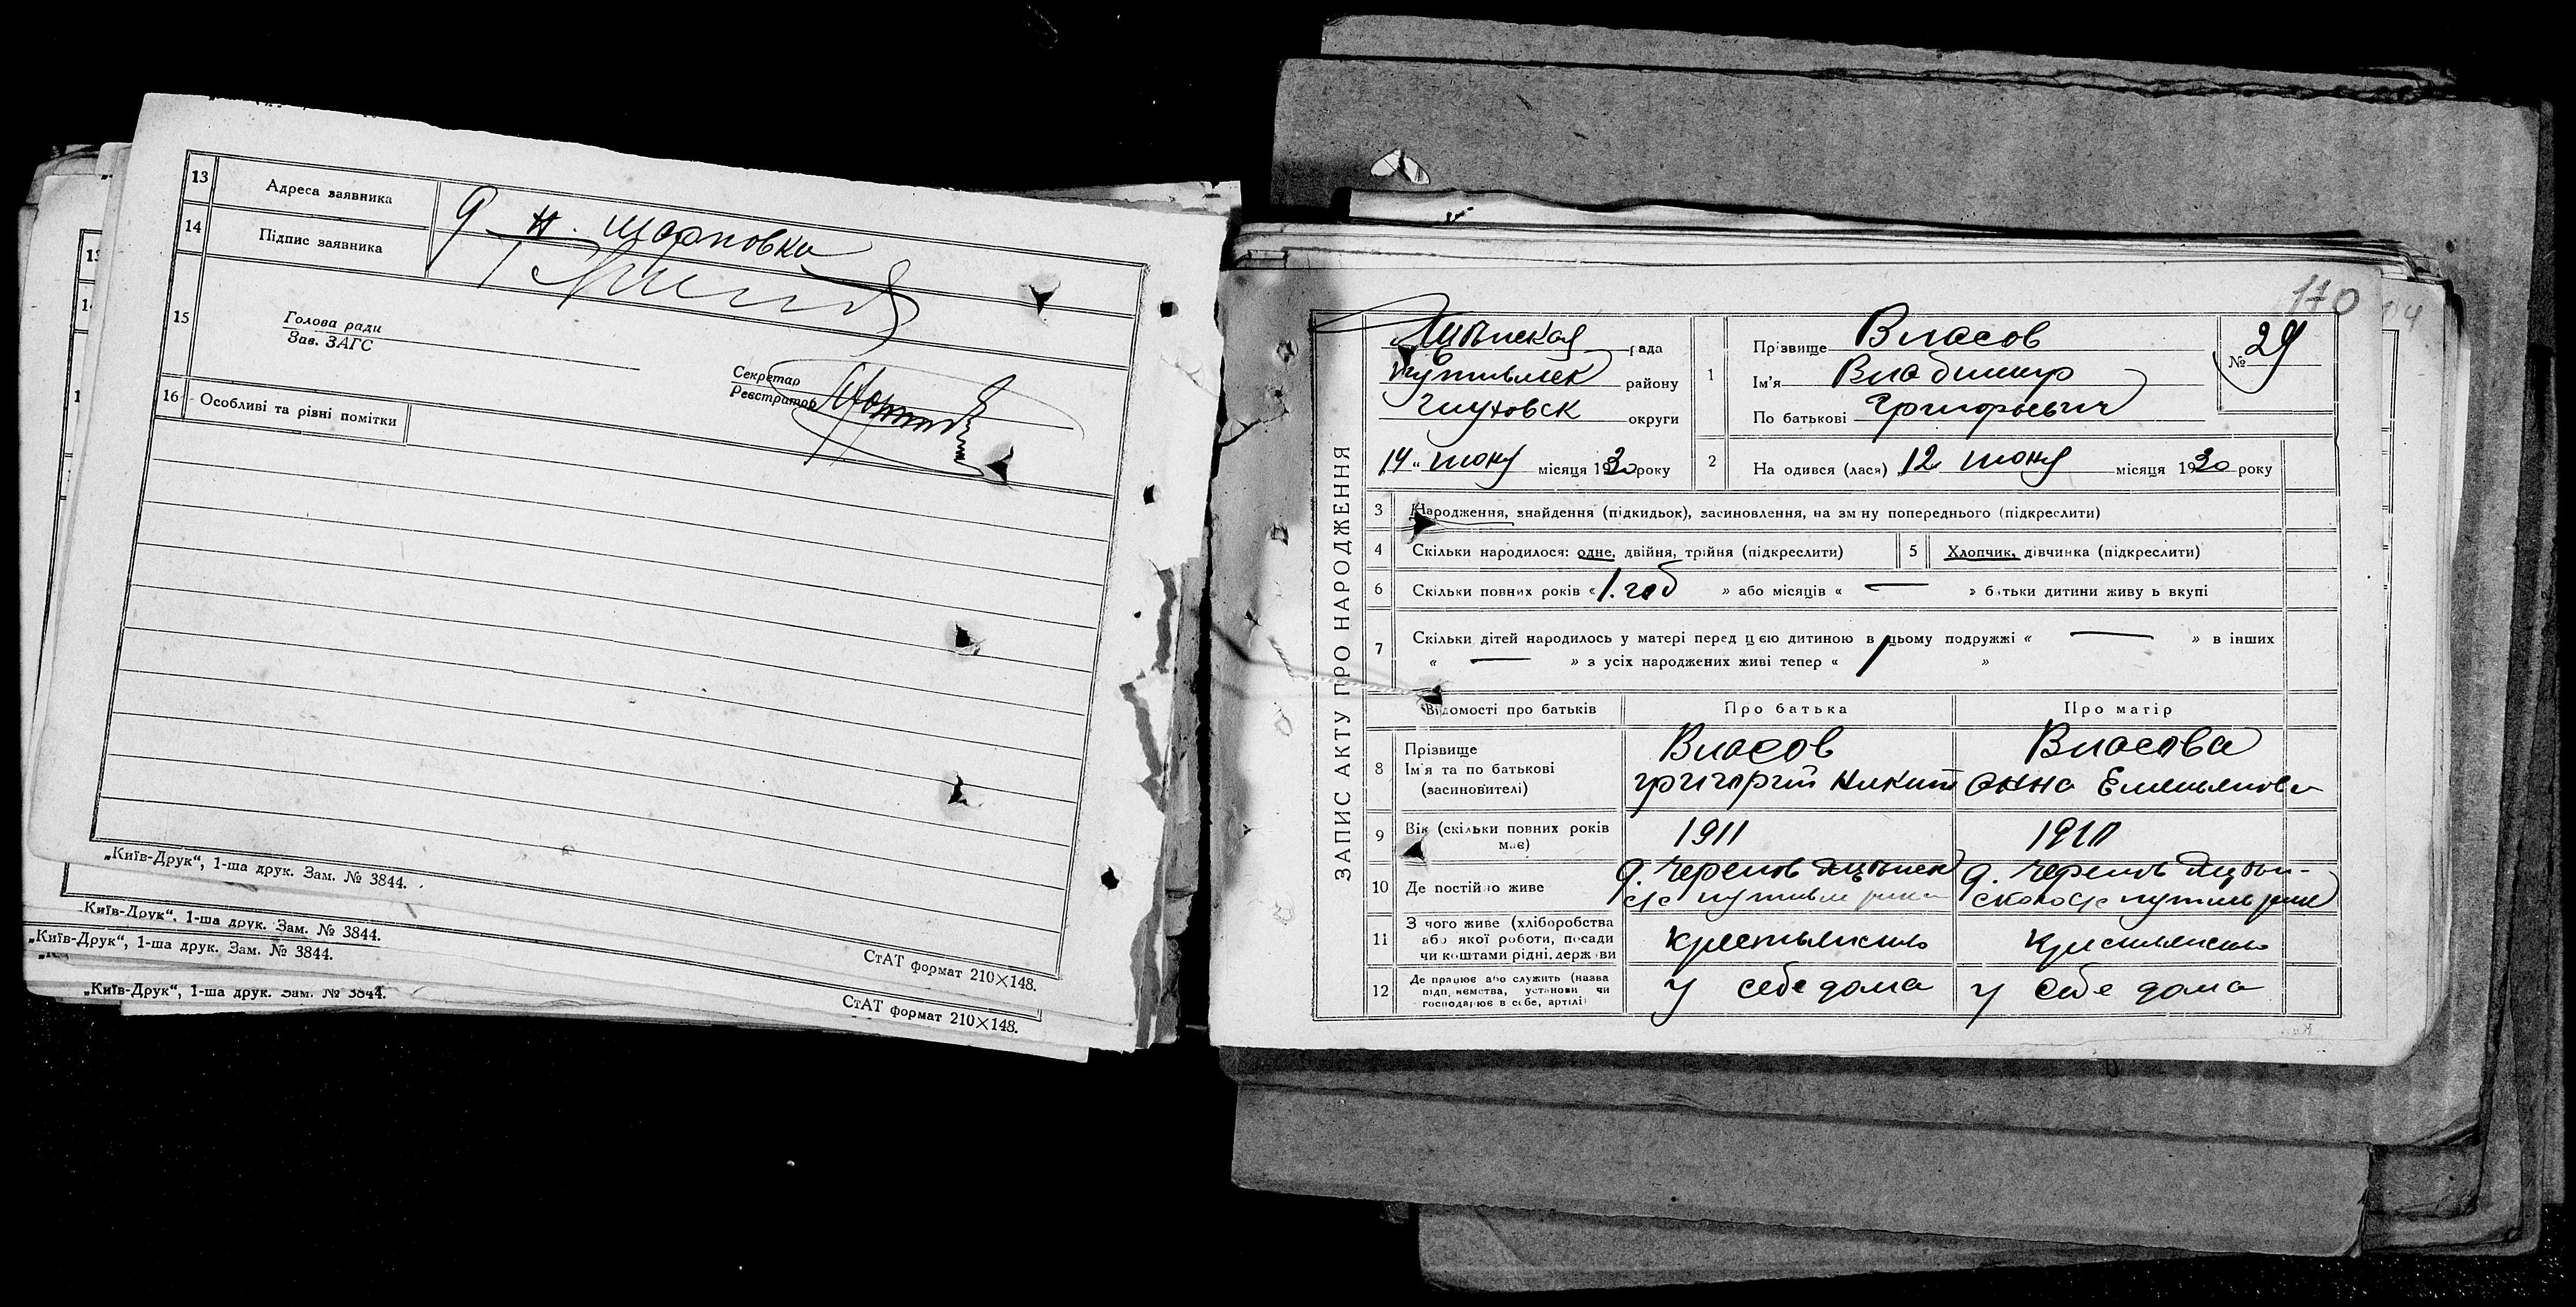 13 Адреса заявника д. н. Шарповка
14 Підпис заявника
15 Голова ради
Зав. ЗАГС
Секретар
Реєстратор
16 Особливі та різні помітки
„Київ-Друк“, 1-ша друк. Зам. № 3844.
СтАТ формат 210×148.
„Київ-Друк“, 1-ша друк. Зам. № 3844.
„Київ-Друк“, 1-ша друк. Зам. № 3844.
„Київ-Друк“, 1-ша друк. Зам. № 3844.
СтАТ формат 210×148.
170
ЗАПИС АКТУ ПРО НАРОДЖЕННЯ
рада
Путивльск району
Глуховск округи
14 „ июня місяця 1930 року
1 Прізвище Власов
Ім'я Владимир
По батькові Григорьевич
№ 29
2 На одився (лася) 12 июня місяця 1930 року
3 Народження, знайдення (підкидьок), засиновлення, на зміну попереднього (підкреслити)
4 Скільки народилося: одне, двійня, трійня (підкреслити) 5 Хлопчик, дівчинка (підкреслити)
6 Скільки повних років « 1. год » або місяців « — » батьки дитини живуть вкупі
7 Скільки дітей народилось у матері перед цією дитиною в цьому подружжі « — » в інших
« — » з усіх народжених живі тепер « »
Відомості про батьків Про батька Про матір
8 Прізвище
Ім'я та по батькові
(засновителі)
Власов
Григорий Никит
Власова
Анна Емельянова
9 Вік (скільки повних років має) 1911 1910
10 Де постійно живе
11 З чого живе (хліборобства
або якої роботи, посади
чи коштами рідні, держави
крестьянство крестьянство
12 Де працює або служить (назва
підприємства, установи чи
господарює в себе, артілі)
у себе дома у себе дома